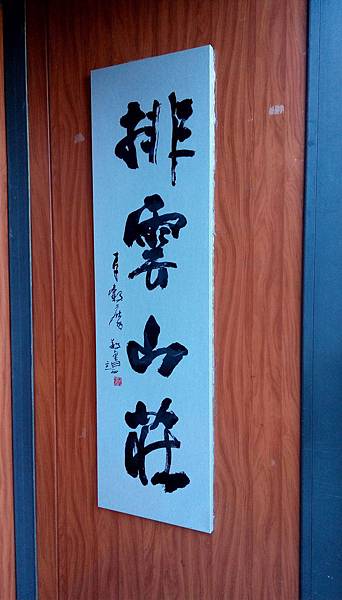 排雲山莊